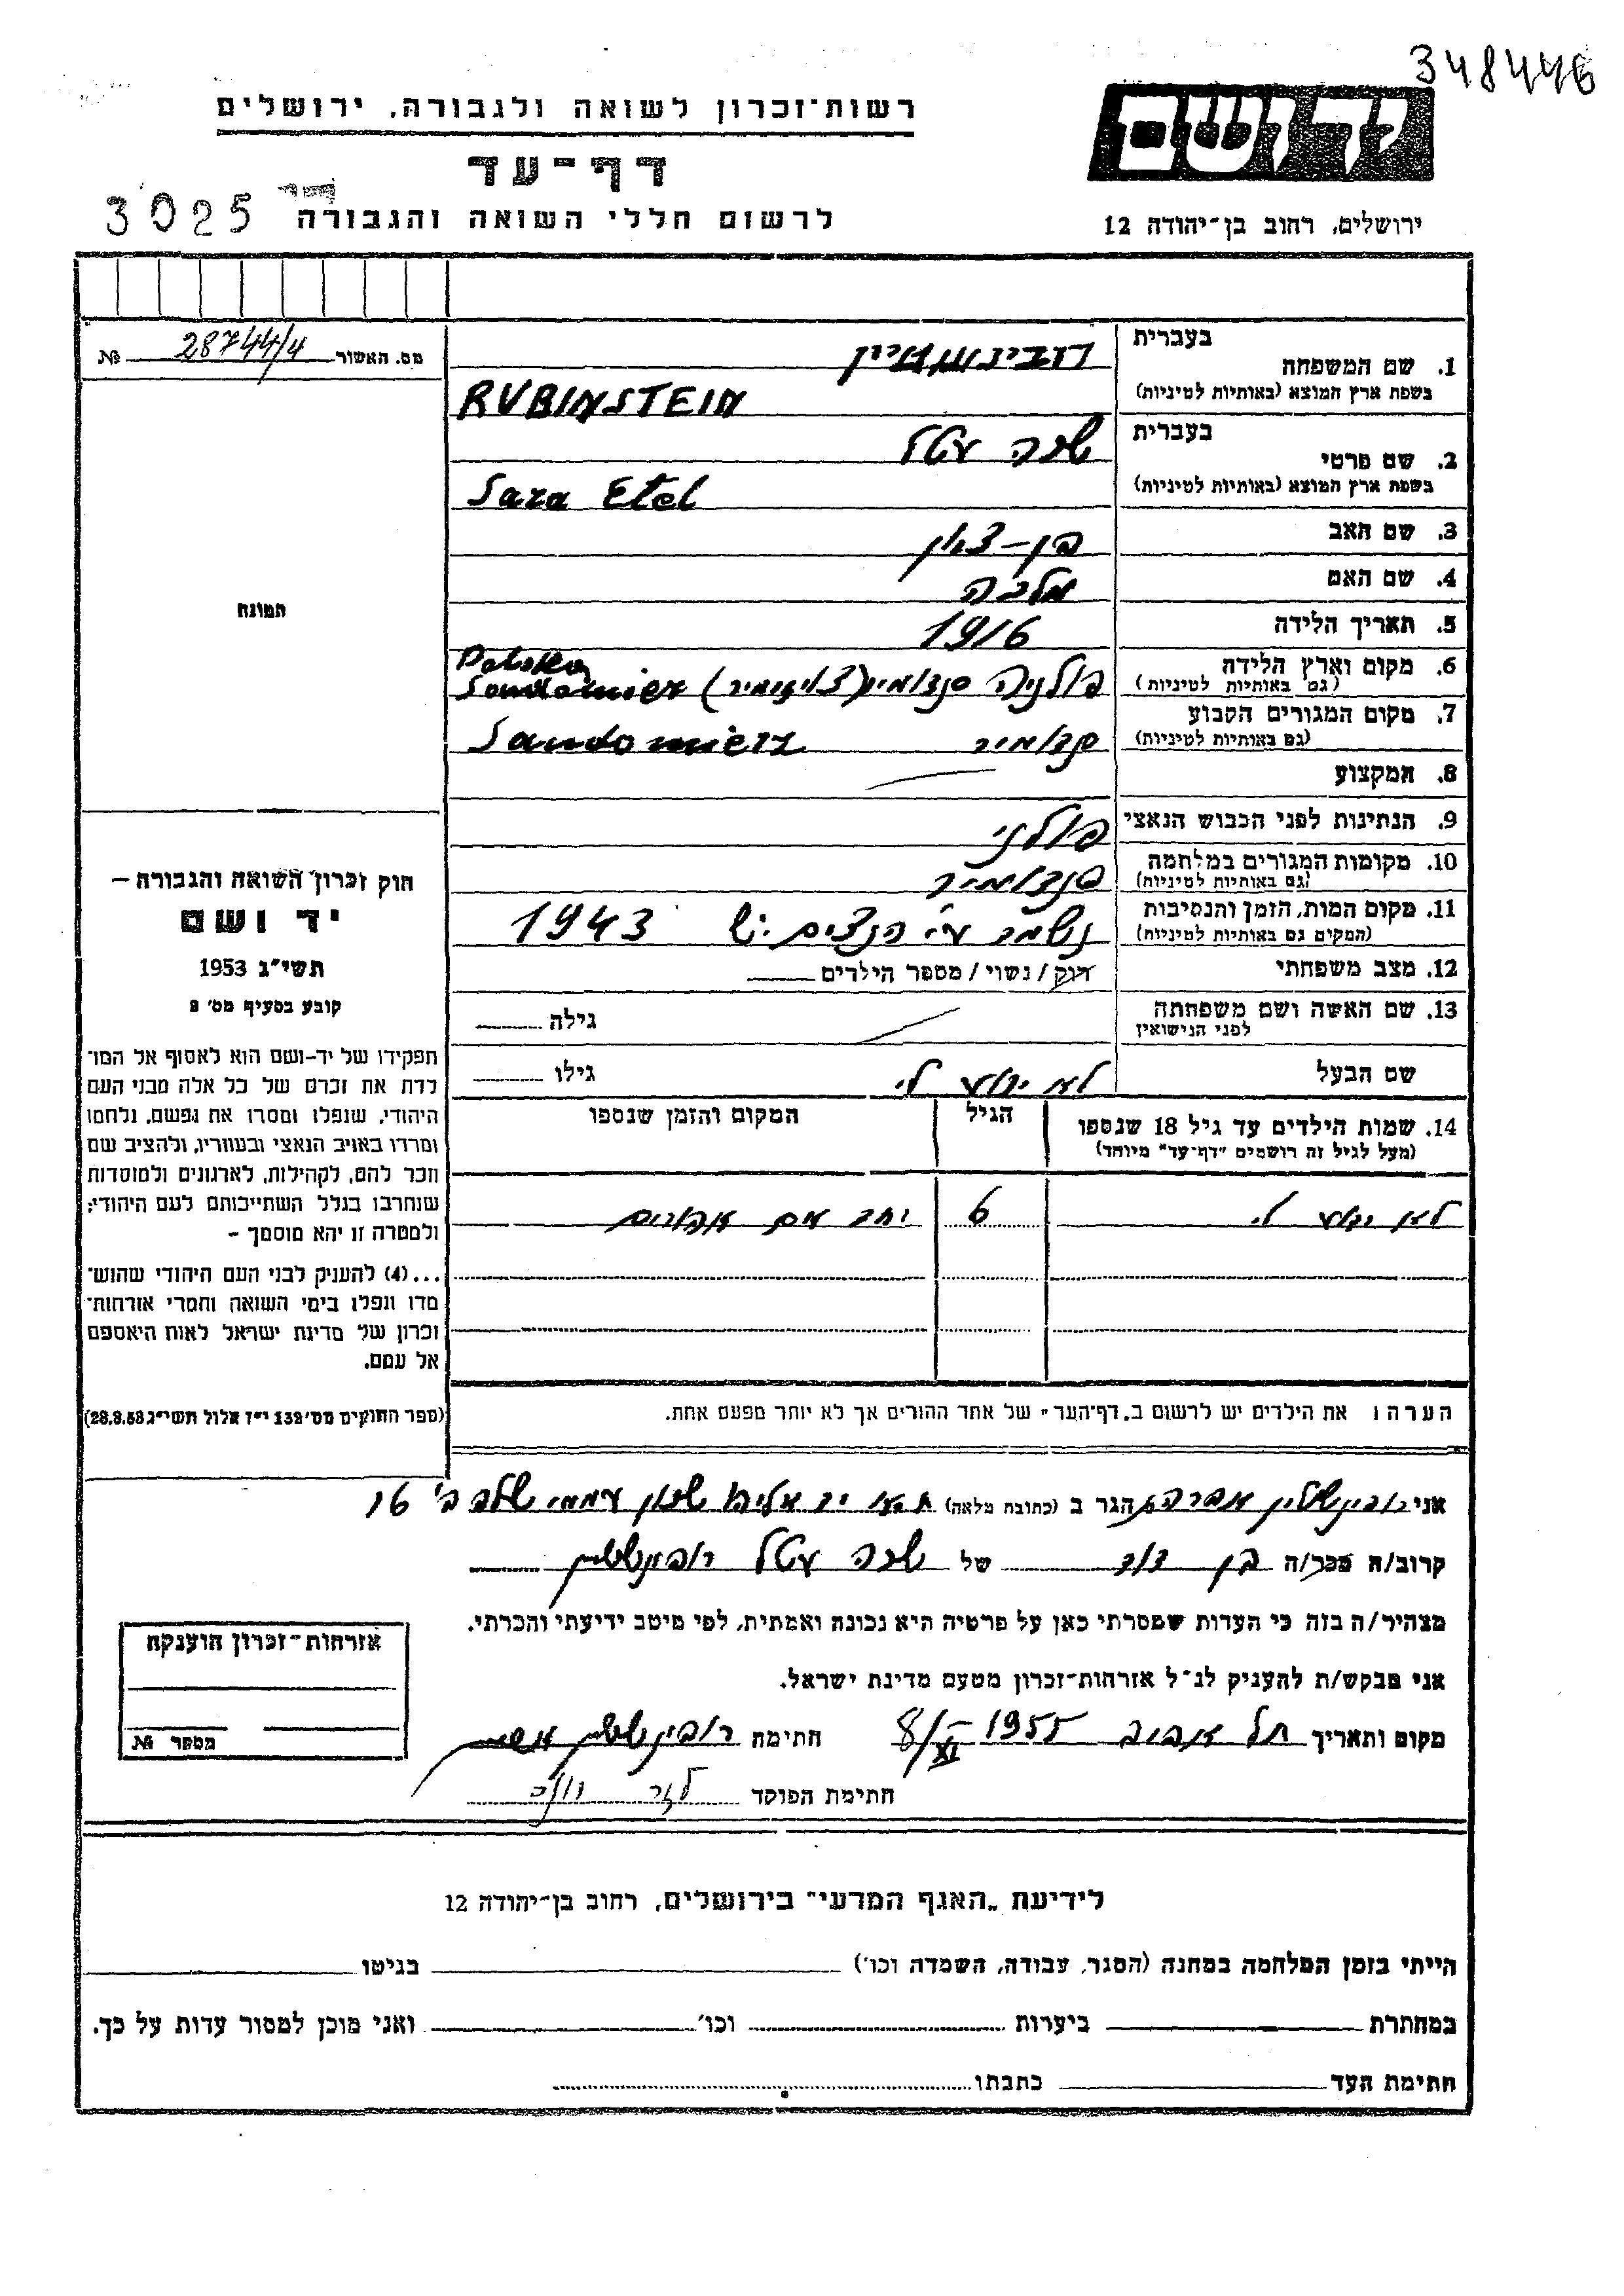 348446
רשות־זכרון לשואה ולגבורה, ירושלים
יד ושם
דף־עד
לרשום חללי השואה והגבורה
3025
ירושלים, רחוב בן־יהודה 12
מס. האשור 28744/4 №
בעברית
1. שם המשפחה
בשפת ארץ המוצא (באותיות לטיניות)
רובינשטיין
RUBINSTEIN
בעברית
2. שם פרטי
בשפת ארץ המוצא (באותיות לטיניות)
שרה עטל
Sara Etel
3. שם האב
בן-ציון
4. שם האם
מלכה
5. תאריך הלידה
1916
6. מקום וארץ הלידה
(גם באותיות לטיניות)
Polska
פולניה סנדומיר (צויזמיר) Sandomierz
7. מקום המגורים הקבוע
(גם באותיות לטיניות)
סנדומיר Sandomierz
8. המקצוע
9. הנתינות לפני הכבוש הנאצי
פולני
10. מקומות המגורים במלחמה
(גם באותיות לטיניות)
סנדומיר
11. מקום המות, הזמן והנסיבות
(המקום גם באותיות לטיניות)
ע״י הנצים 1943
12. מצב משפחתי
רוק / נשוי / מספר הילדים
13. שם האשה ושם משפחתה
לפני הנישואין
גילה
שם הבעל
לא ידוע לי
גילו
14. שמות הילדים עד גיל 18 שנספו
(מעל לגיל זה רושמים "דף־עד" מיוחד)
הגיל
המקום והזמן שנספו
לא ידוע לי 6 יחד עם
הערה: את הילדים יש לרשום ב„דף־העד" של אחד ההורים אך לא יותר מפעם אחת.
התמונה
חוק זכרון השואה והגבורה –
יד ושם
תשי״ג 1953
קובע בסעיף מס׳ 2
תפקידו של יד-ושם הוא לאסוף אל המו־
לדת את זכרם של כל אלה מבני העם
היהודי, שנפלו ומסרו את נפשם, נלחמו
ומרדו באויב הנאצי ובעוזריו, ולהציב שם
וזכר להם, לקהילות, לארגונים ולמוסדות
שנחרבו בגלל השתייכותם לעם היהודי;
ולמטרה זו יהא מוסמך –
...(4) להעניק לבני העם היהודי שהוש־
מדו ונפלו בימי השואה והמרי אזרחות־
זכרון של מדינת ישראל לאות היאספם
אל עמם.
(ספר החוקים מס׳ 132 י״ז אלול תשי״ג 28.8.53)
אני רובינשטיין הגר ב (כתובת מלאה) שכון עממי שלב ב׳ 16
קרוב/ה מכר/ה בן דוד של שרה עטל רובינשטיין
מצהיר/ה בזה כי העדות שמסרתי כאן על פרטיה היא נכונה ואמתית, לפי מיטב ידיעתי והכרתי.
אני מבקש/ת להעניק לנ״ל אזרחות־זכרון מטעם מדינת ישראל.
מקום ותאריך תל אביב 1955 8/XI חתימה רובינשטיין
חתימת הפוקד
אזרחות־זכרון הוענקה
מספר №
לידיעת „האגף המדעי" בירושלים, רחוב בן־יהודה 12
הייתי בזמן המלחמה במחנה (הסגר, עבודה, השמדה וכו׳) בגיטו
במחתרת ביערות וכו׳ ואני מוכן למסור עדות על כך.
חתימת העד כתבתו